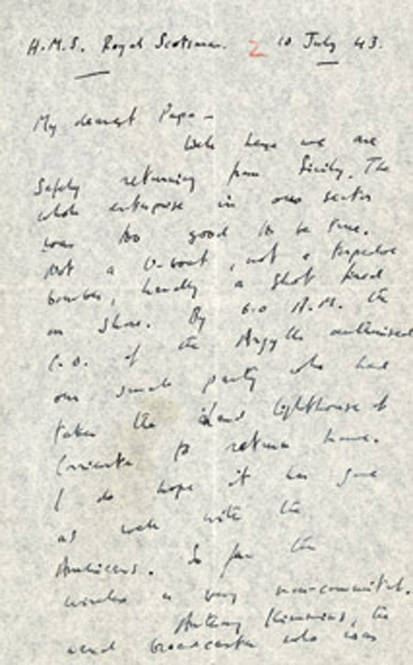 H.M.S. Royal Scotsman. 2 10 July 43.
My dearest Papa -
Well here we are
safely returning from Sicily. The
whole enterprise in our sector
was too good to be true.
Not a U-boat, not a torpedo
bomber, hardly a shot fired
on shore. By 6.0 A.M. the
C.O. of the Argylls authorised
our small party who had
taken the island lighthouse of
to return home.
I do hope it has gone
as well with the
Americans. So far the
wireless is very non-committal.
Anthony Kimmins, the
naval broadcaster who was